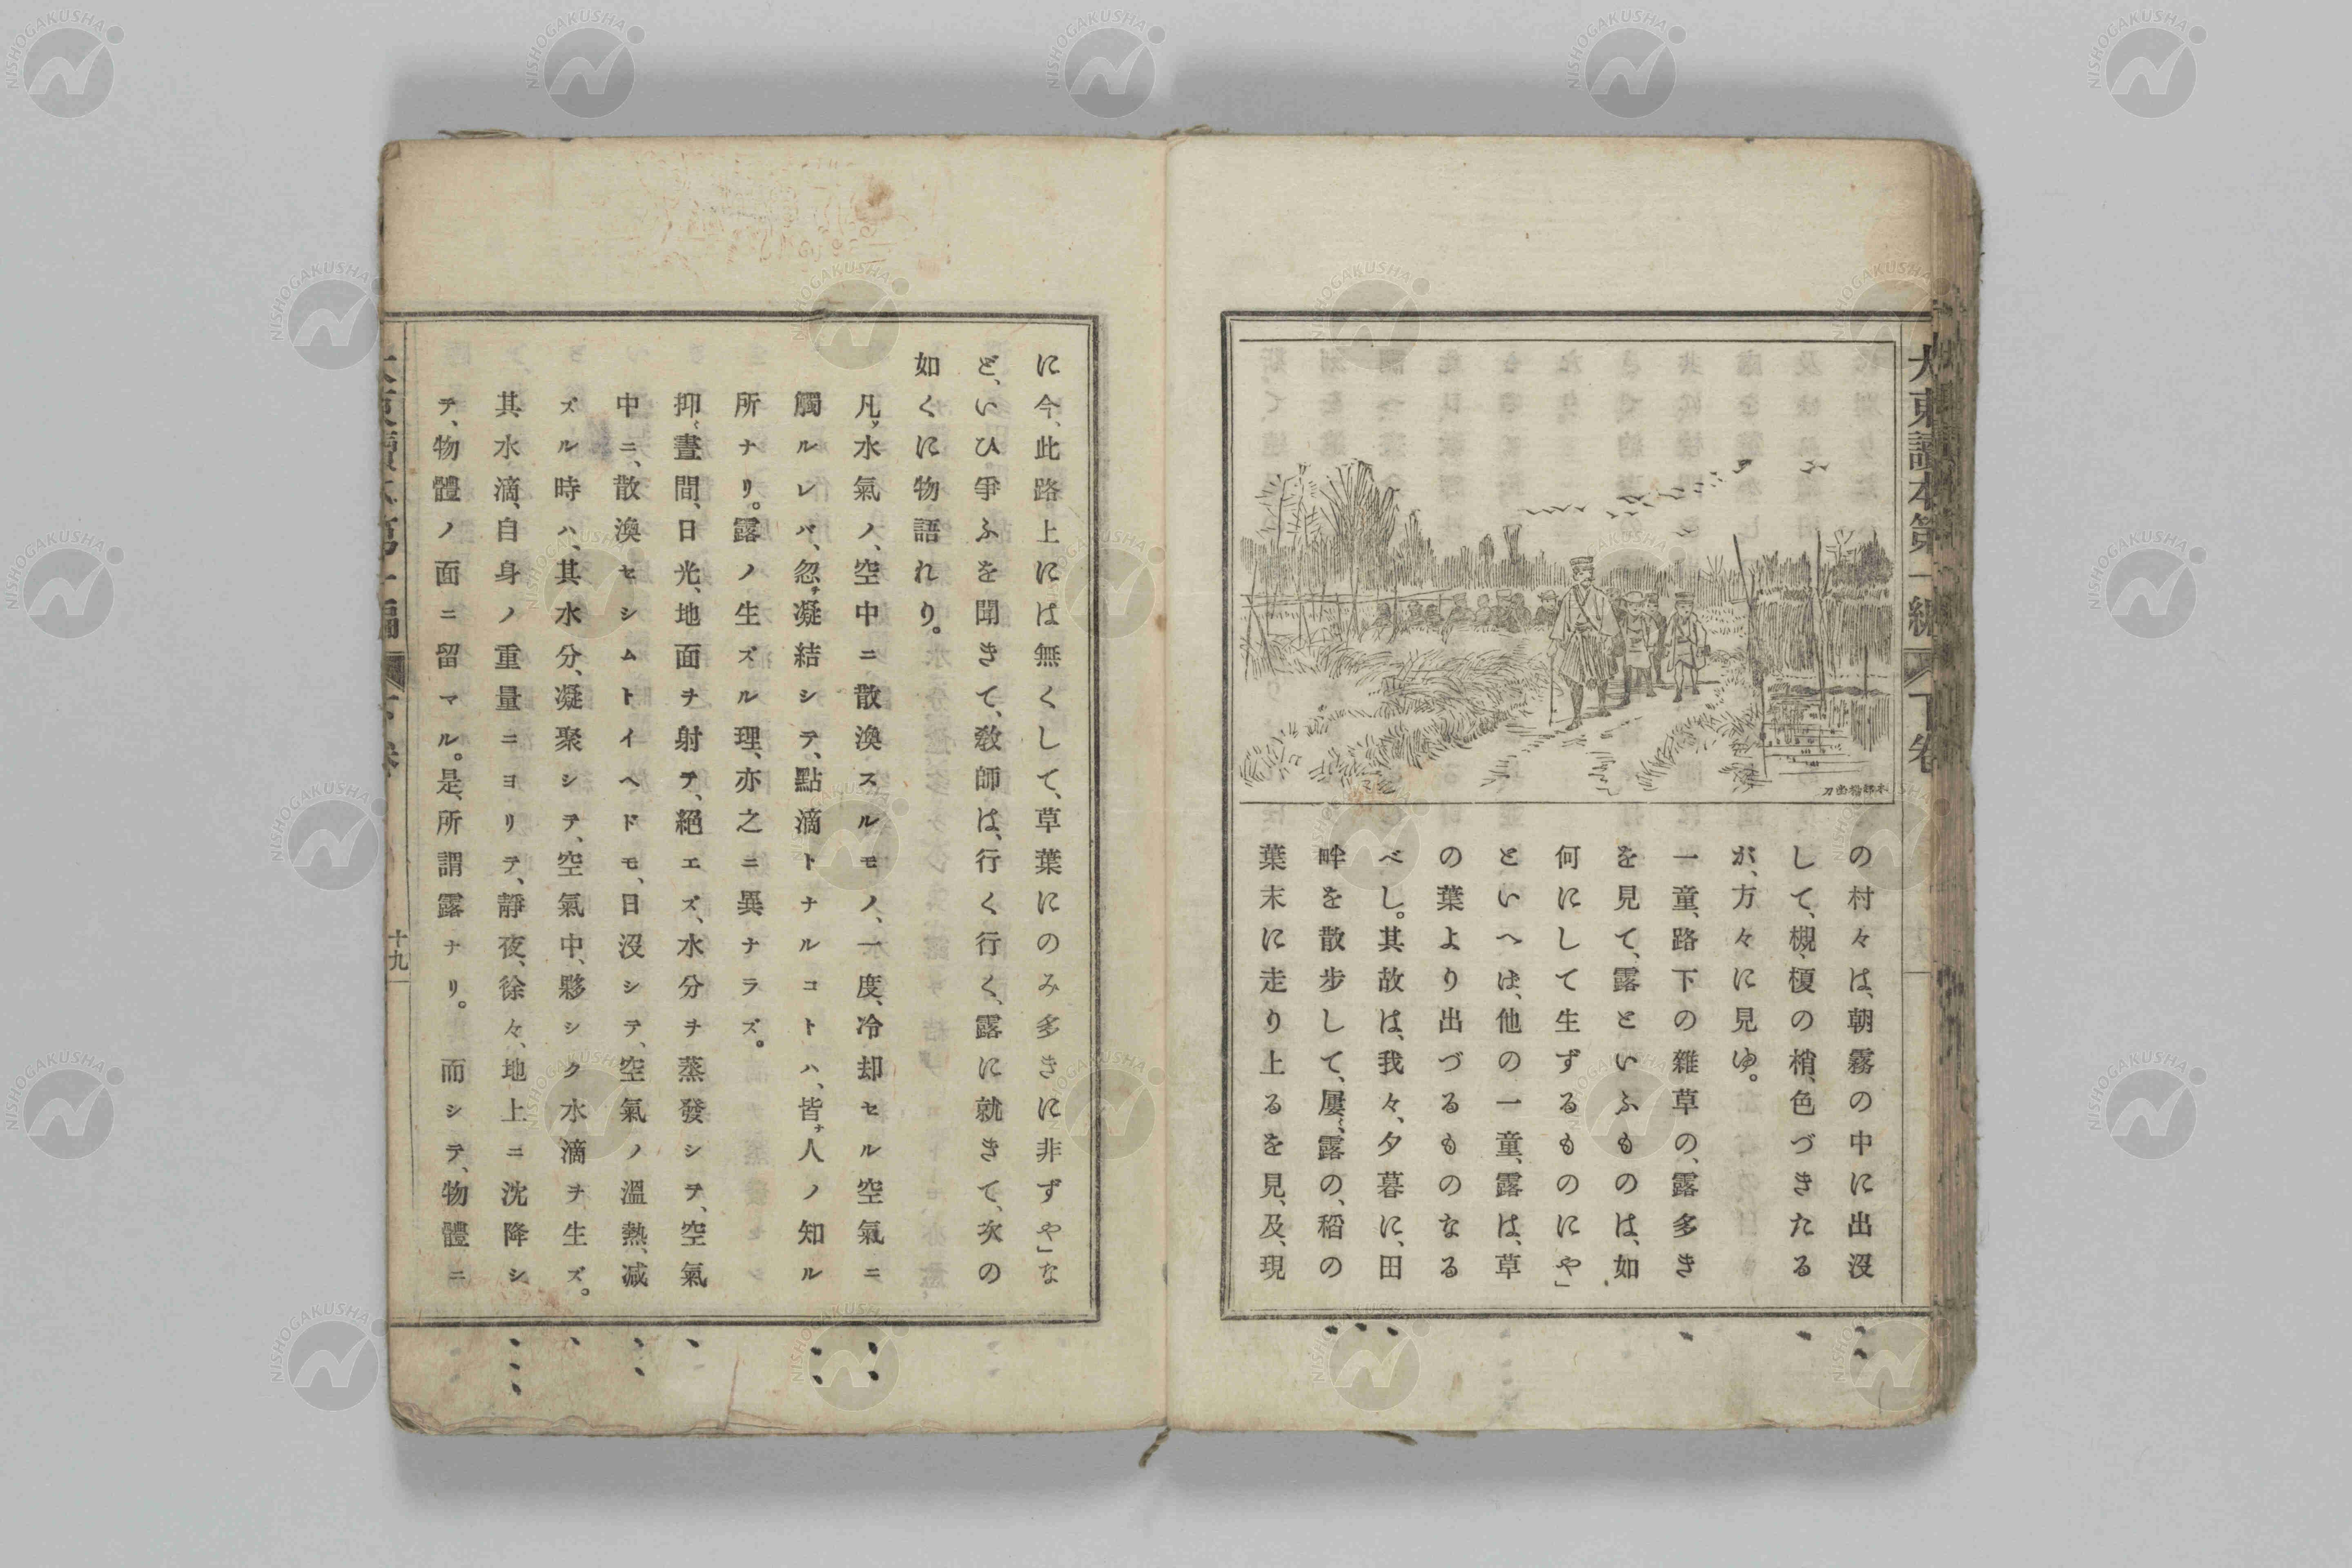 大東讀本第一編 下卷
の村々は、朝霧の中に出沒
して、槻、榎の梢、色づきたる
が、方々に見ゆ。
一童、路下の雜草の、露多き
を見て、露といふものは、如
何にして生ずるものにや」
といへは、他の一童、露は、草
の葉より出づるものなる
べし。其故は、我々、夕暮に、田
畔を散步して、屢〻、露の、稻の
葉末に走り上るを見、及、現
に今、此路上には無くして、草葉にのみ多きに非ずや」な
ど、いひ爭ふを聞きて、敎師は、行く行く、露に就きて、次の
如くに物、語れり。
凡ソ水氣ノ、空中ニ散渙スルモノ、一度、冷却セル空氣ニ
觸ルレバ、忽チ凝結シテ、點滴トナルコトハ、皆ナ人ノ知ル
所ナリ。露ノ生ズル理、亦之ニ異ナラズ。
抑〻晝間、日光、地面ヲ射テ、絕エズ、水分ヲ蒸發シテ、空氣
中ニ、散渙セシムトイヘドモ、日沒シテ、空氣ノ溫熱、減
ズル時ハ、其水分、凝聚シテ、空氣中、夥シク水滴ヲ生ズ。
其水滴、自身ノ重量ニヨリテ、靜夜、徐々、地上ニ沈降シ
テ、物體ノ面ニ留マル。是、所謂露ナリ。而シテ、物體ニ
十九
NISHOGAKUSHA